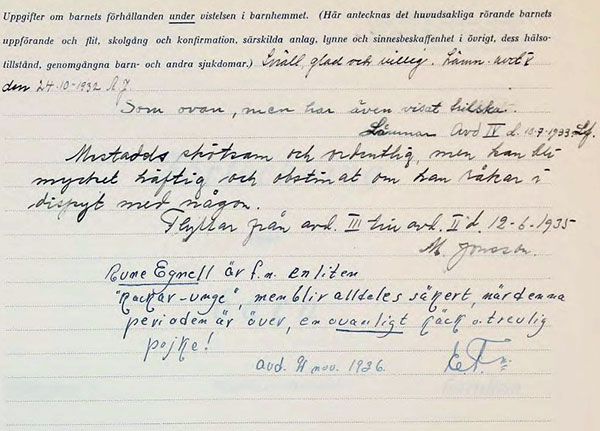 Uppgifter om barnets förhållanden under vistelsen i barnhemmet. (Här antecknas det huvudsakliga rörande barnets
uppförande och flit, skolgång och konfirmation, särskilda anlag, lynne och sinnesbeskaffenhet i övrigt, dess hälso-
tillstånd, genomgångna barn- och andra sjukdomar.) Snäll, glad och villig. Lämn. avd
den 24.10-1932
Som ovan, men har även visat hälska.
Lämnar Avd IV d. 10.7.1933
skötsam och ordentlig, men kan bli
mycket häftig och obstinat om han råkar i
dispyt med någon.
Flyttar från avd. III till avd. II d. 12-6-1935
M. Jonsson.
Rune Egnell är f.n. en liten
"Rackar-unge", men blir alldeles säkert, när denna
perioden är över, en ovanligt käck o. trevlig
pojke!
avd. II nov. 1936.